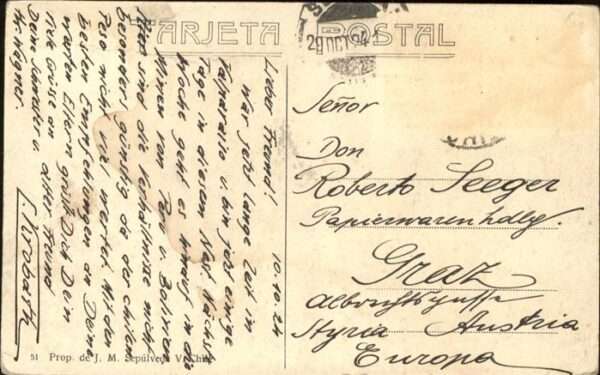 TARJETA POSTAL
29 OCT 24
10.10.24
Lieber Freund!
War jetzt lange Zeit in
Valparaiso u. bin jetzt einige
Tage in diesem Nest. Nächste
Woche geht es hinauf in die
Minen von Peru u. Bolivien
sind die Verhältnisse nicht
besonders günstig da der chilen
Peso nicht viel wertet. Mit den
besten Empfehlungen an Deine
werten Eltern grüßt Dich Dein
alter Freund
Viele Grüsse an
Deine Schwester u.
Hr. Wagner.
Krobath
Señor
Don
Roberto Seeger
Papierwaren hdlg.
Graz
Albrechtsgasse
Styria Austria
Europa
51 Prop. de J. M. Sepúlveda V. Chile